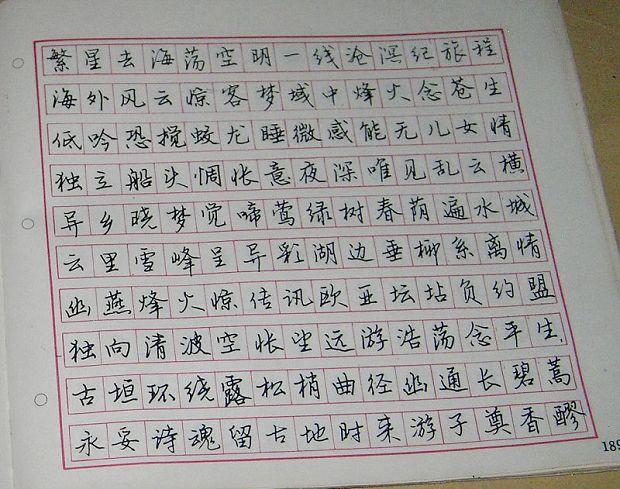 繁星去海荡空明一线沧溟纪旅程
海外风云惊客梦域中烽火念苍生
低吟恐搅蛟龙睡微感能无儿女情
独立船头惆怅意夜深唯见乱云横
异乡晓梦觉啼莺绿树春荫遍水城
云里雪峰呈异彩湖边垂柳系离情
幽燕烽火惊传讯欧亚坛坫负约盟
独向清波空怅望远游浩荡念平生,
古垣环绕露松梢曲径幽通长碧蒿
永妥诗魂留古地时来游子奠香醪
189